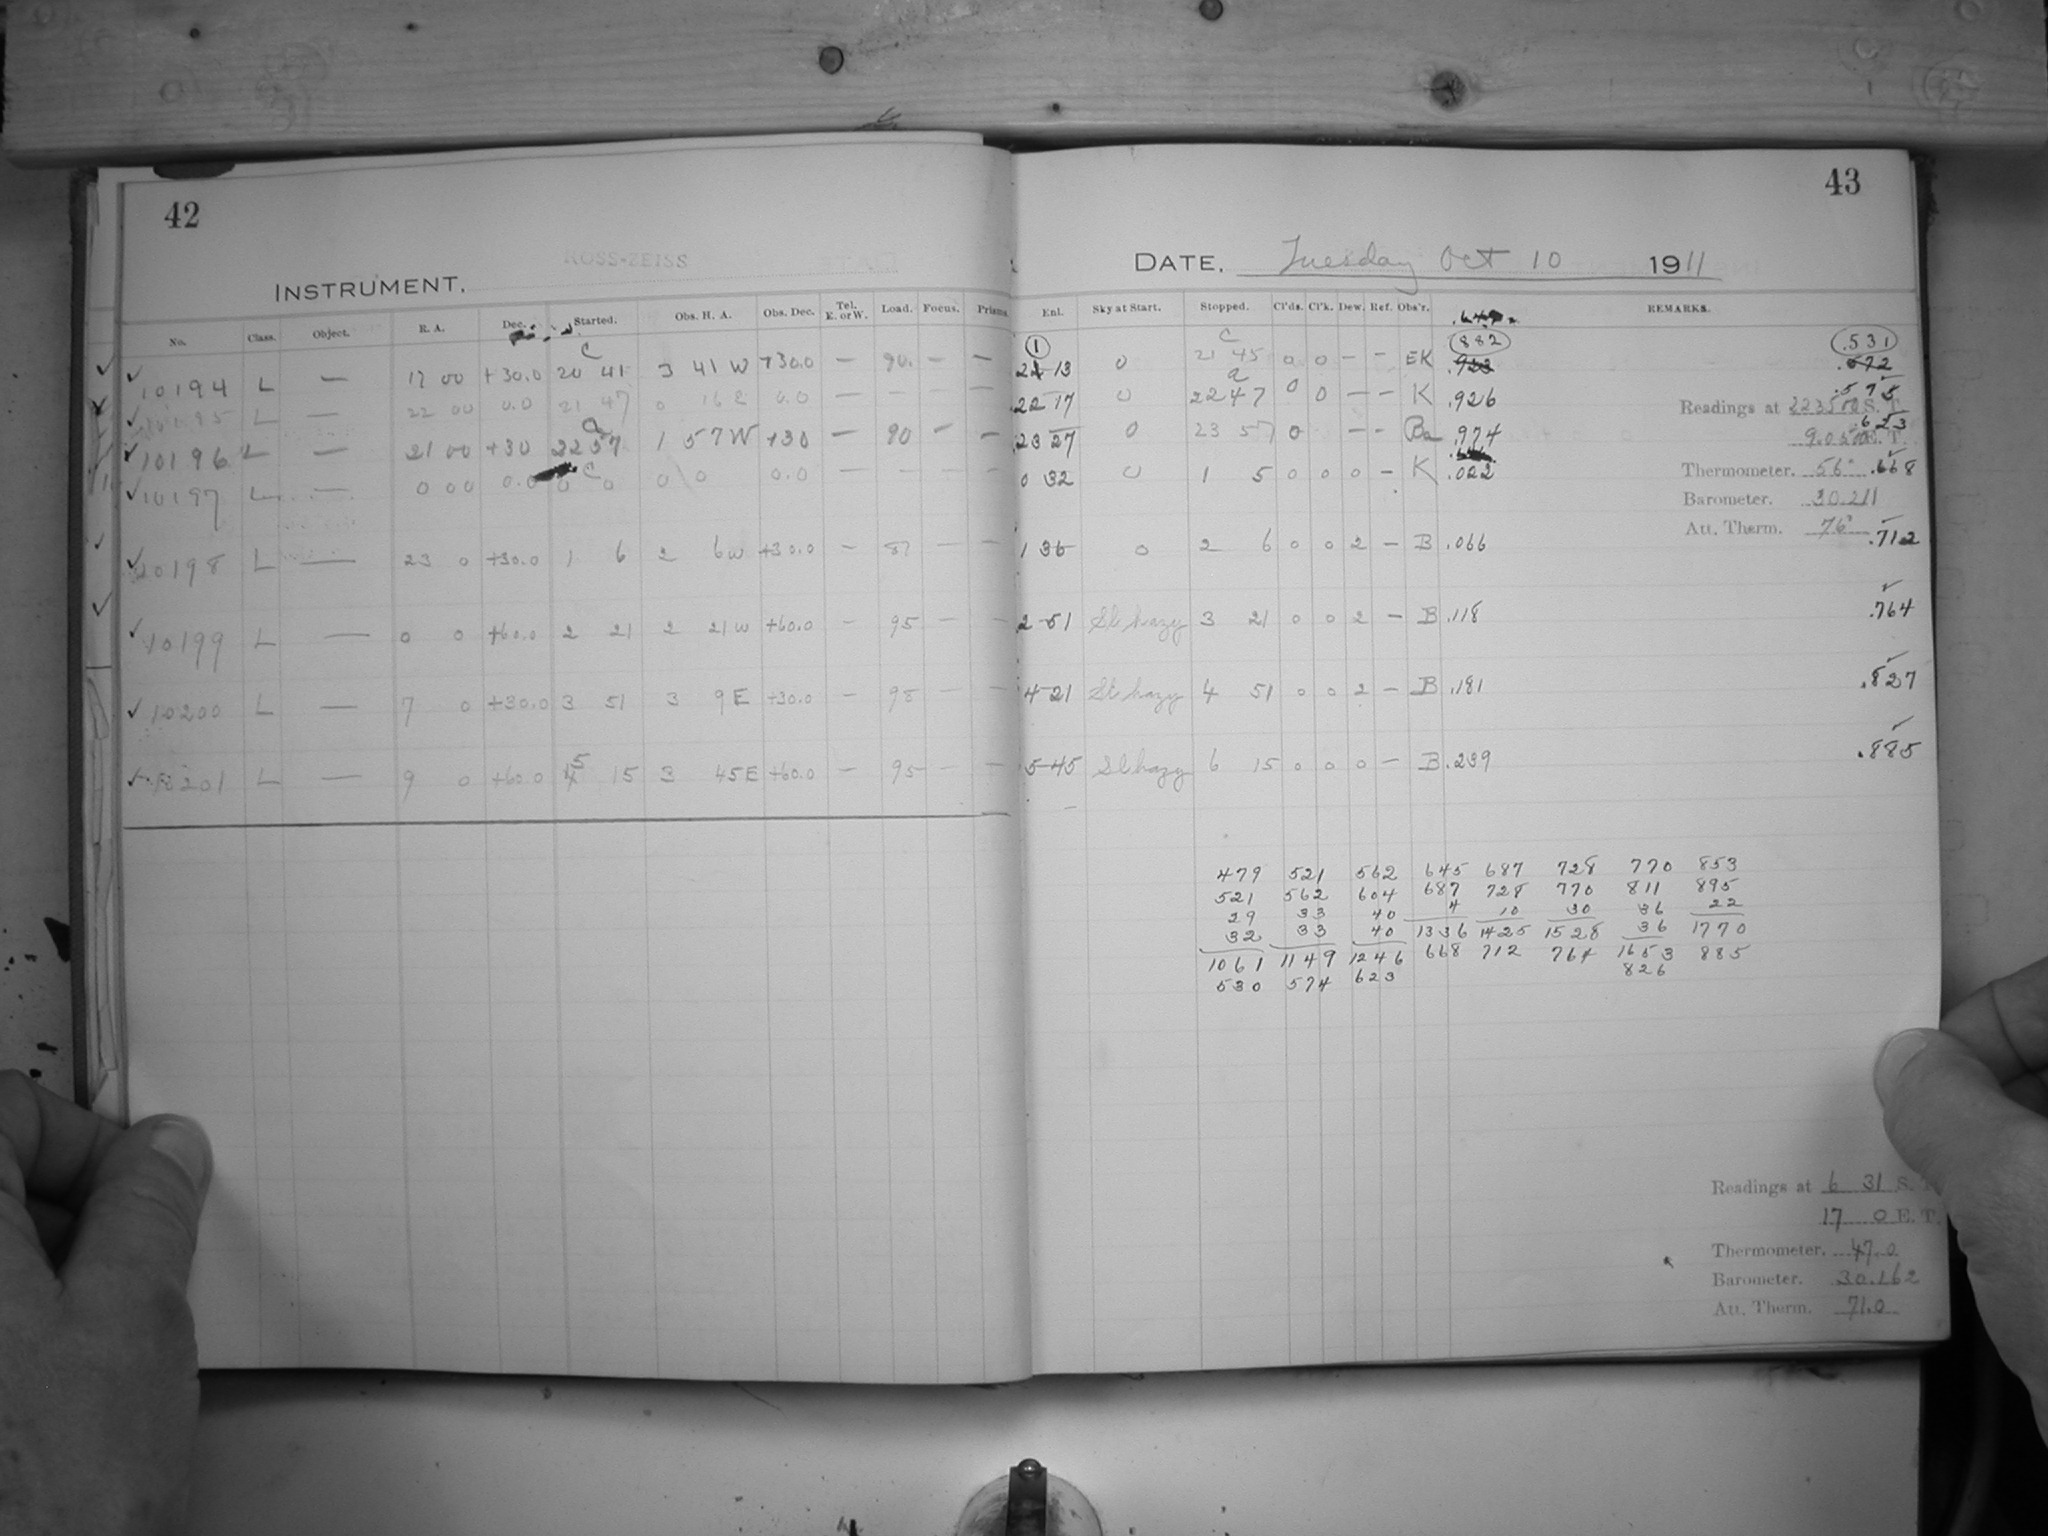 42
ROSS-ZEISS
INSTRUMENT.
No. Class. Object. R. A. Dec. Started. Obs. H. A. Obs. Dec. Tel. E. or W. Load. Focus. Prisms.
10194 L — 17 00 +30.0 20 41 3 41 W +30.0 — 90. — —
10195 L — 22 00 0.0 21 47 0.0 — — — —
10196 L — 21 00 +30 2257 1 57W +30 — 90 — —
10197 L — 0 00 0.0 0 0 0 0 0.0 — — — —
10198 L — 23 0 +30.0 1 6 2 6W +30.0 — 87 — —
10199 L — 0 0 +60.0 2 21 2 21W +60.0 — 95 — —
10200 L — 7 0 +30.0 3 51 3 9E +30.0 — 95 — —
10201 L — 9 0 +60.0 5 15 3 45E +60.0 — 95 — —
43
DATE, Tuesday Oct 10 1911
Enl. Sky at Start. Stopped. Cl'ds. Cl'k. Dew. Ref. Obs'r. REMARKS.
1 C 882 .531
22 13 0 21 45 0 0 — — EK .672
22 17 0 2247 0 0 — — K .926 .575
23 27 0 23 57 0 — — Ba .974 .623
0 32 0 1 5 0 0 0 — K .022 .668
1 36 0 2 6 0 0 2 — B .066 .712
2 51 Sl hazy 3 21 0 0 2 — B .118 .764
4 21 Sl hazy 4 51 0 0 2 — B .181 .827
5 45 Sl hazy 6 15 0 0 0 — B .239 .885
Readings at S. T.
E. T.
Thermometer. 56°
Barometer. 30.211
Att. Therm. 76°
479 521 562 645 687 728 770 853
521 562 604 687 728 770 811 895
29 33 40 4 10 30 36 22
32 33 40 1336 1425 1528 36 1770
1061 1149 1246 668 712 764 1653 885
530 574 623 826
Readings at 6 31 S. T.
17 0 E. T.
Thermometer. 47.0
Barometer. 30.162
Att. Therm. 71.0